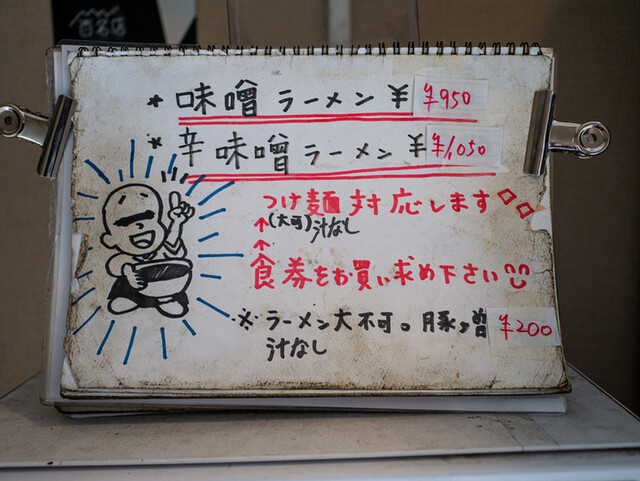 百名店
* 味噌ラーメン¥ ¥950
* 辛味噌ラーメン¥ ¥1,050
つけ麺対応します
↑(大可)汁なし
↑
食券をお買い求め下さい
※ラーメン大不可。豚増 ¥200
汁なし